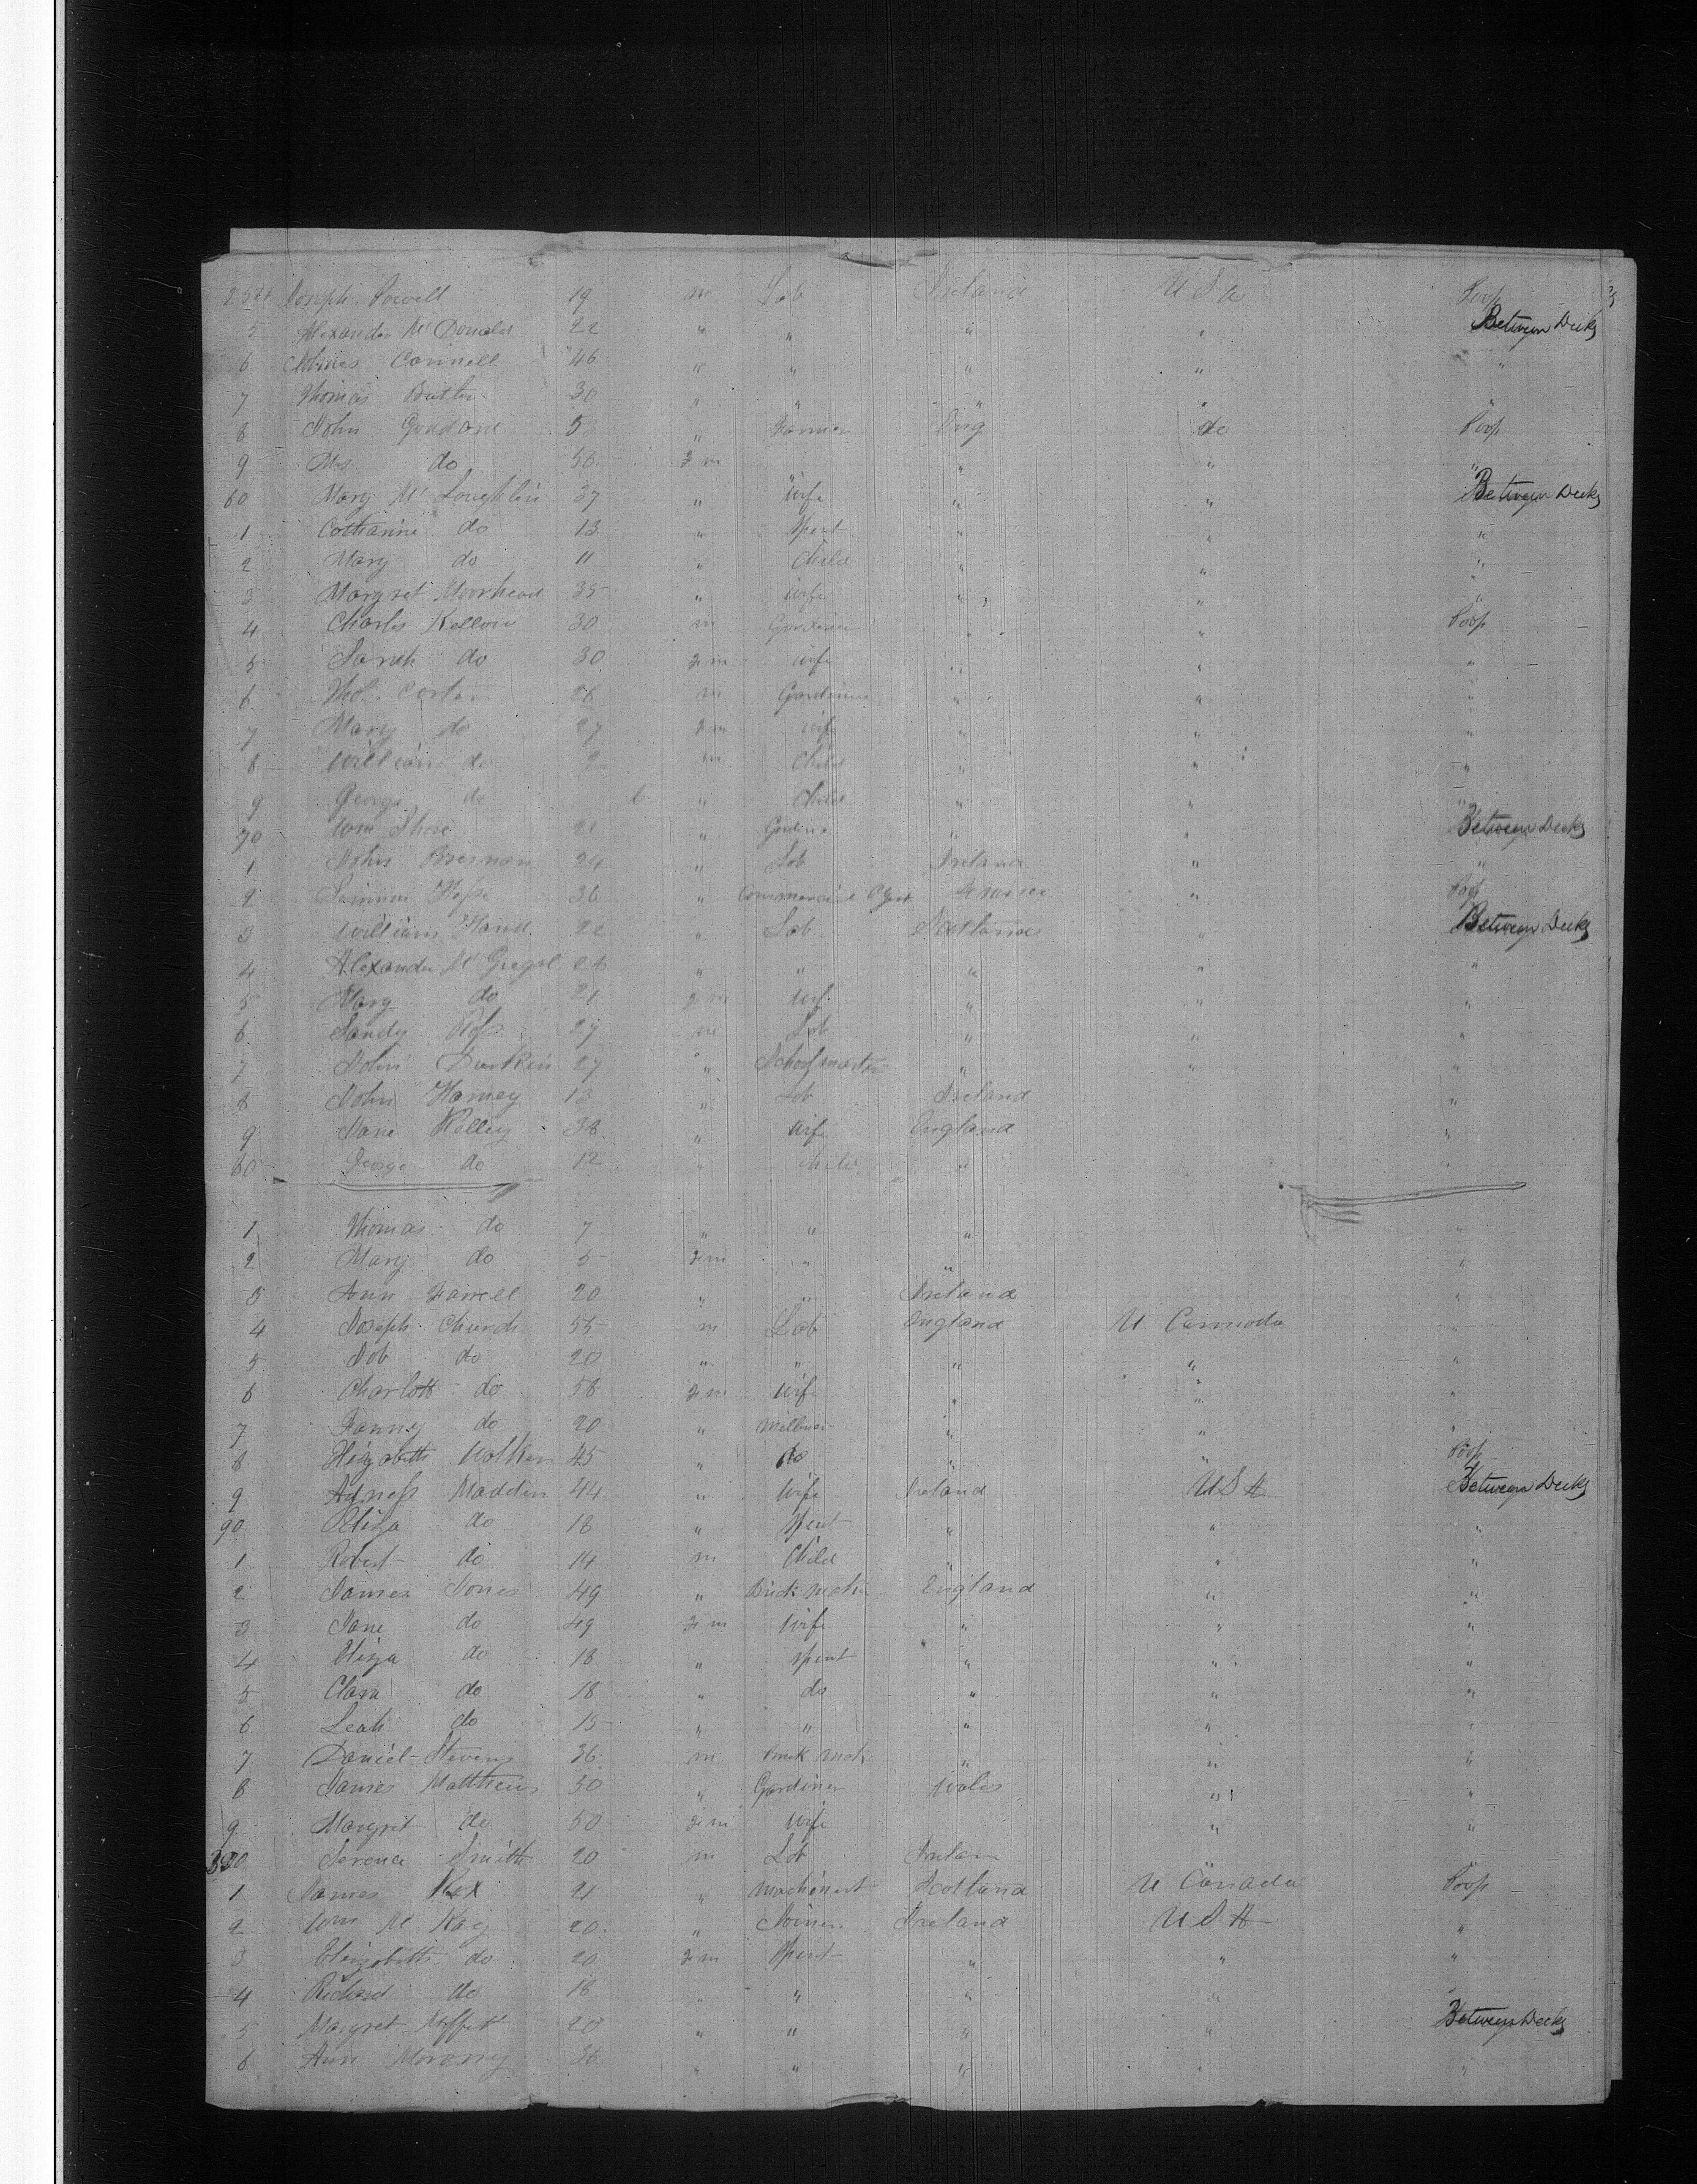 254 Joseph Powell 19 m Lab Ireland U S a Poop
5 Alexander McDonald 22 " " " " Between Decks
6 James Connell 46 " " " " "
7 Thomas Butler 30 " " " " "
8 John Goddard 53 " Farmer Eng do Poop
9 Mrs do 58 fm " " "
60 Mary McLoughlin 37 " Wife " " Between Decks
1 Catharine do 13 " Spint " " "
2 Mary do 11 " Child " " "
3 Margret Moorhead 35 " Wife " " "
4 Charles Kellow 30 m Gardener " " Poop
5 Sarah do 30 fm Wife " " "
6 Thos Carter 26 m Gardiner " " "
7 Mary do 27 fm Wife " " "
8 William do 2 m Child " " "
9 George do 6 " Child " " "
70 Wm Shore 21 " Gardiner " " Between Decks
1 John Bresnan 24 " Lab Ireland " "
2 Hesse 36 " Commercial Agent " Poop
3 William Hand 22 " Lab Scotland " Between Decks
4 Alexander McGregor 26 " " " " "
5 Mary do 21 fm Wif " " "
6 Sandy Ross 27 m Lab " " "
7 John 27 " Schoolmaster " " "
8 John Harney 13 " Lab Ireland "
9 Jane Kelley 38 " Wife England "
80 George do 12 " Child " "
1 Thomas do 7 " " " "
2 Mary do 5 fm " " "
3 Ann Farrell 20 " " Ireland "
4 Joseph Church 55 m Lab England U Cannada "
5 Job do 20 " " " " "
6 Charlott do 58 fm Wife " " "
7 Fanny do 20 " Milliner " " "
8 Elizabeth Walker 45 " do " " Poop
9 Agness Maddin 44 " Wife Ireland U S A Between Decks
90 Eliza do 18 " Spint " " "
1 Robert do 14 m Child " " "
2 James Jones 49 " Brick Maker England " "
3 Jane do 49 fm Wife " " "
4 Eliza do 18 " Spint " " "
5 Clara do 18 " do " " "
6 Leah do 15 " " " " "
7 Daniel Stevens 36 m Brick Mak " " "
8 James Matthews 50 " Gardiner Wales " "
9 Margrit do 50 fm Wife " "
300 Terence Smith 20 m Lab Irelan
1 James Rex 21 " Machinist Scotland U Canada Poop
2 Wm McKay 20 " Joiner Ireland U S A "
3 Elizabeth do 20 fm Spint " " "
4 Richard do 18 " " " " "
5 Margret Moffett 20 " " " " Between Decks
6 Ann Morony 36 " " " " "